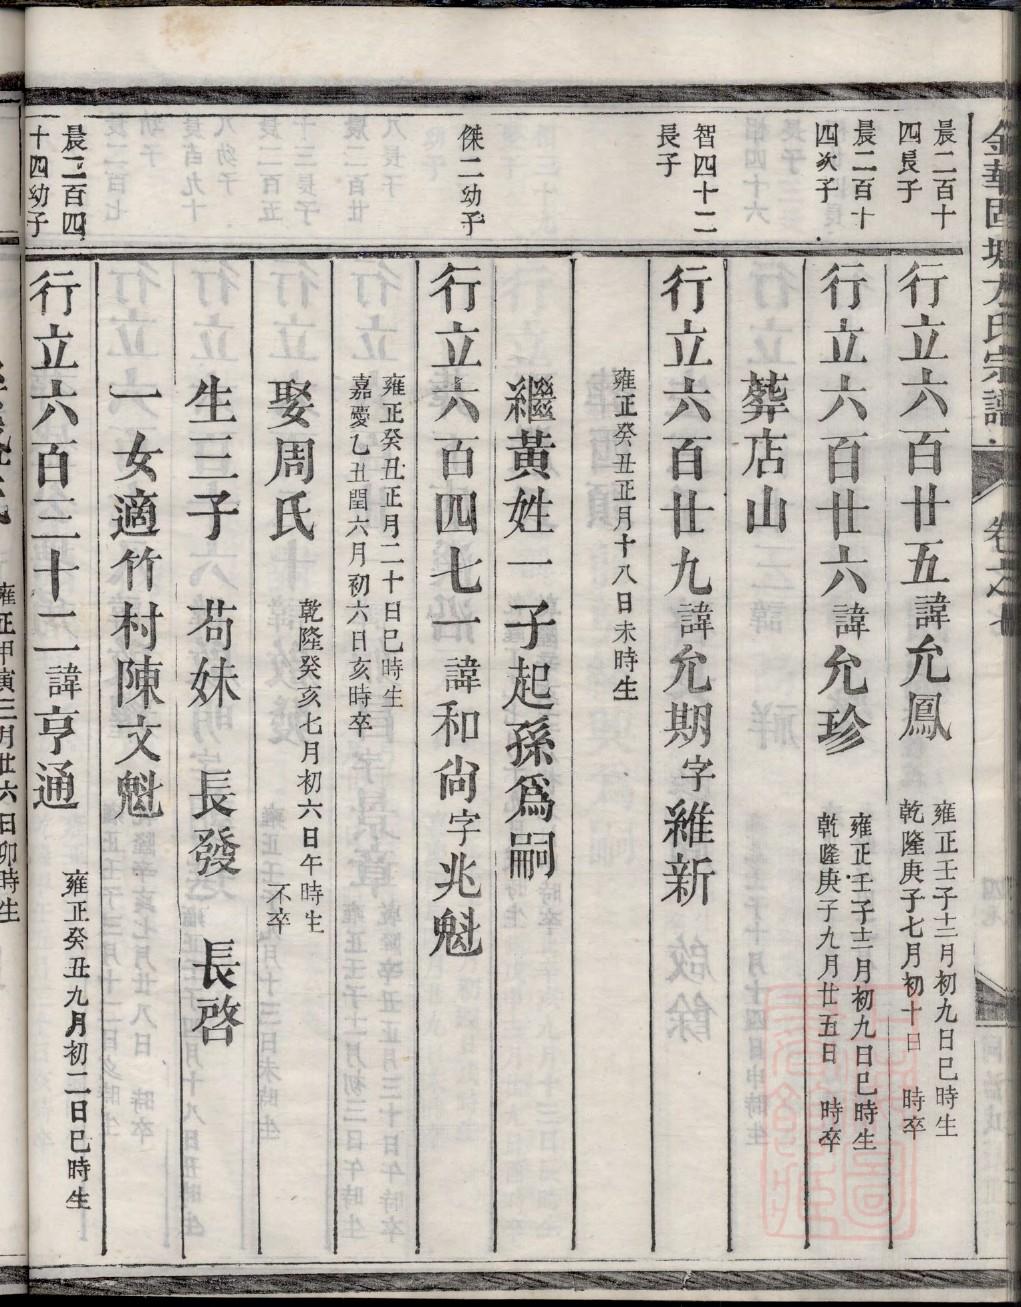 晨二百十
四長子
行立六百廿五諱允鳳
雍正壬子十二月初九日巳時生
乾隆庚子七月初十日 時卒
晨二百十
四次子
行立六百廿六諱允珍
雍正壬子十二月初九日巳時生
乾隆庚子九月廿五日 時卒
葬店山
智四十二
長子
行立六百廿九諱允期字維新
雍正癸丑正月十八日未時生
繼黃姓一子起孫爲嗣
傑二幼子
行立六百四七一諱和尙字兆魁
雍正癸丑正月二十日巳時生
嘉慶乙丑閏六月初六日亥時卒
娶周氏
乾隆癸亥七月初六日午時生
不卒
生三子 苟妹 長發 長啓
一女適竹村陳文魁
晨二百四
十四幼子
行立六百三十二諱亨通
雍正癸丑九月初二日巳時生
雍正甲寅三月廿六日卯時生